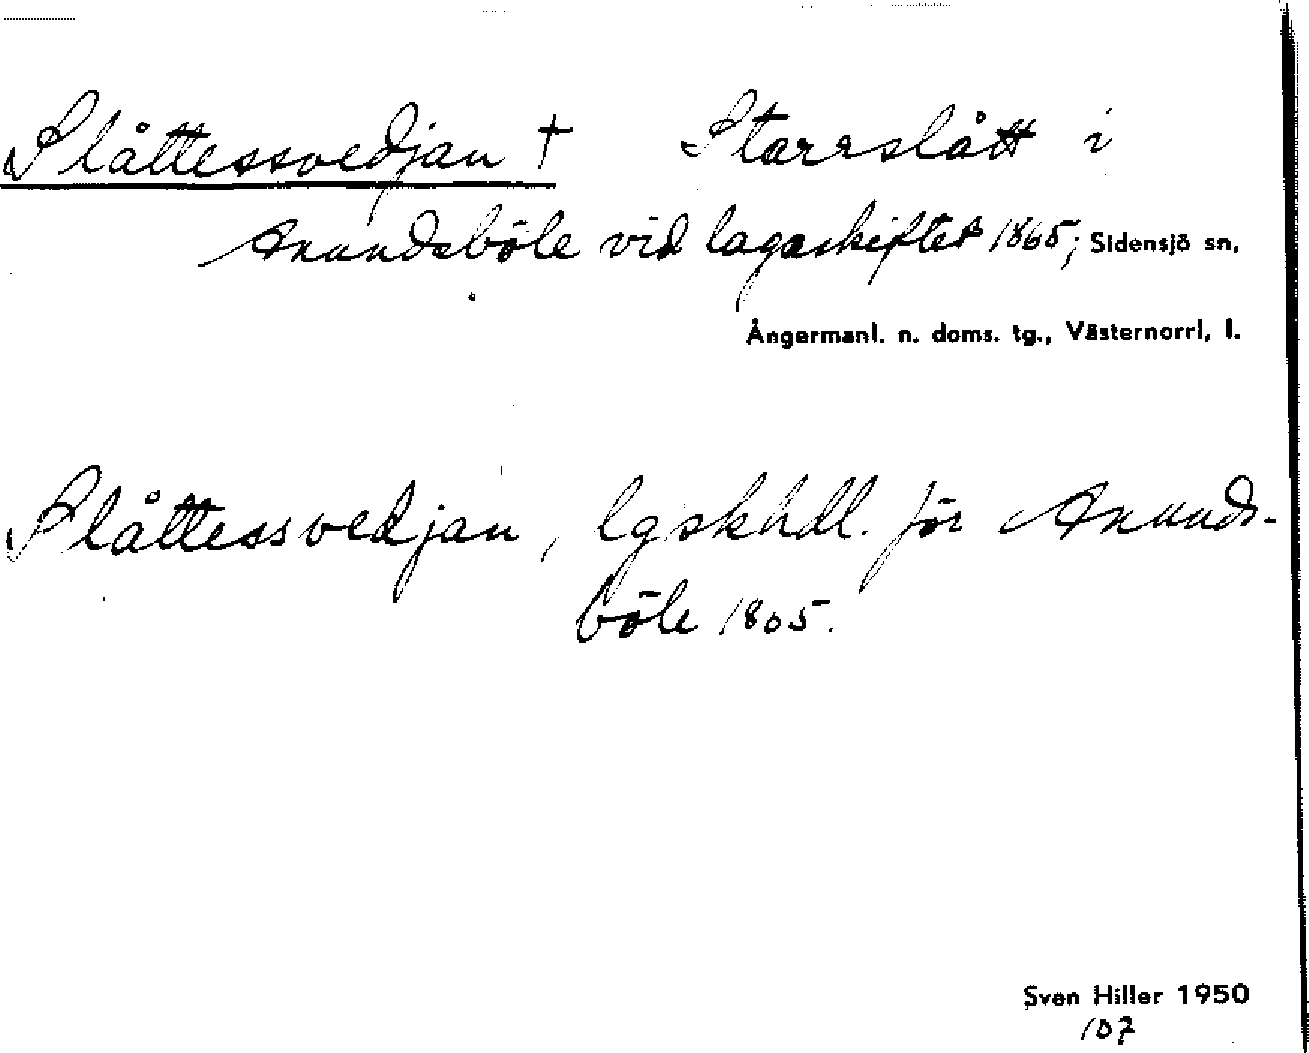 Slåttessvedjan † Starrslått i
Anundsböle vid lagaskiftet 1865; Sidensjö sn,
Ångermanl. n. doms. tg., Västernorrl, l.
Slåttessvedjan, lgskhdl. för Anunds-
böle 1865.
Sven Hiller 1950
107